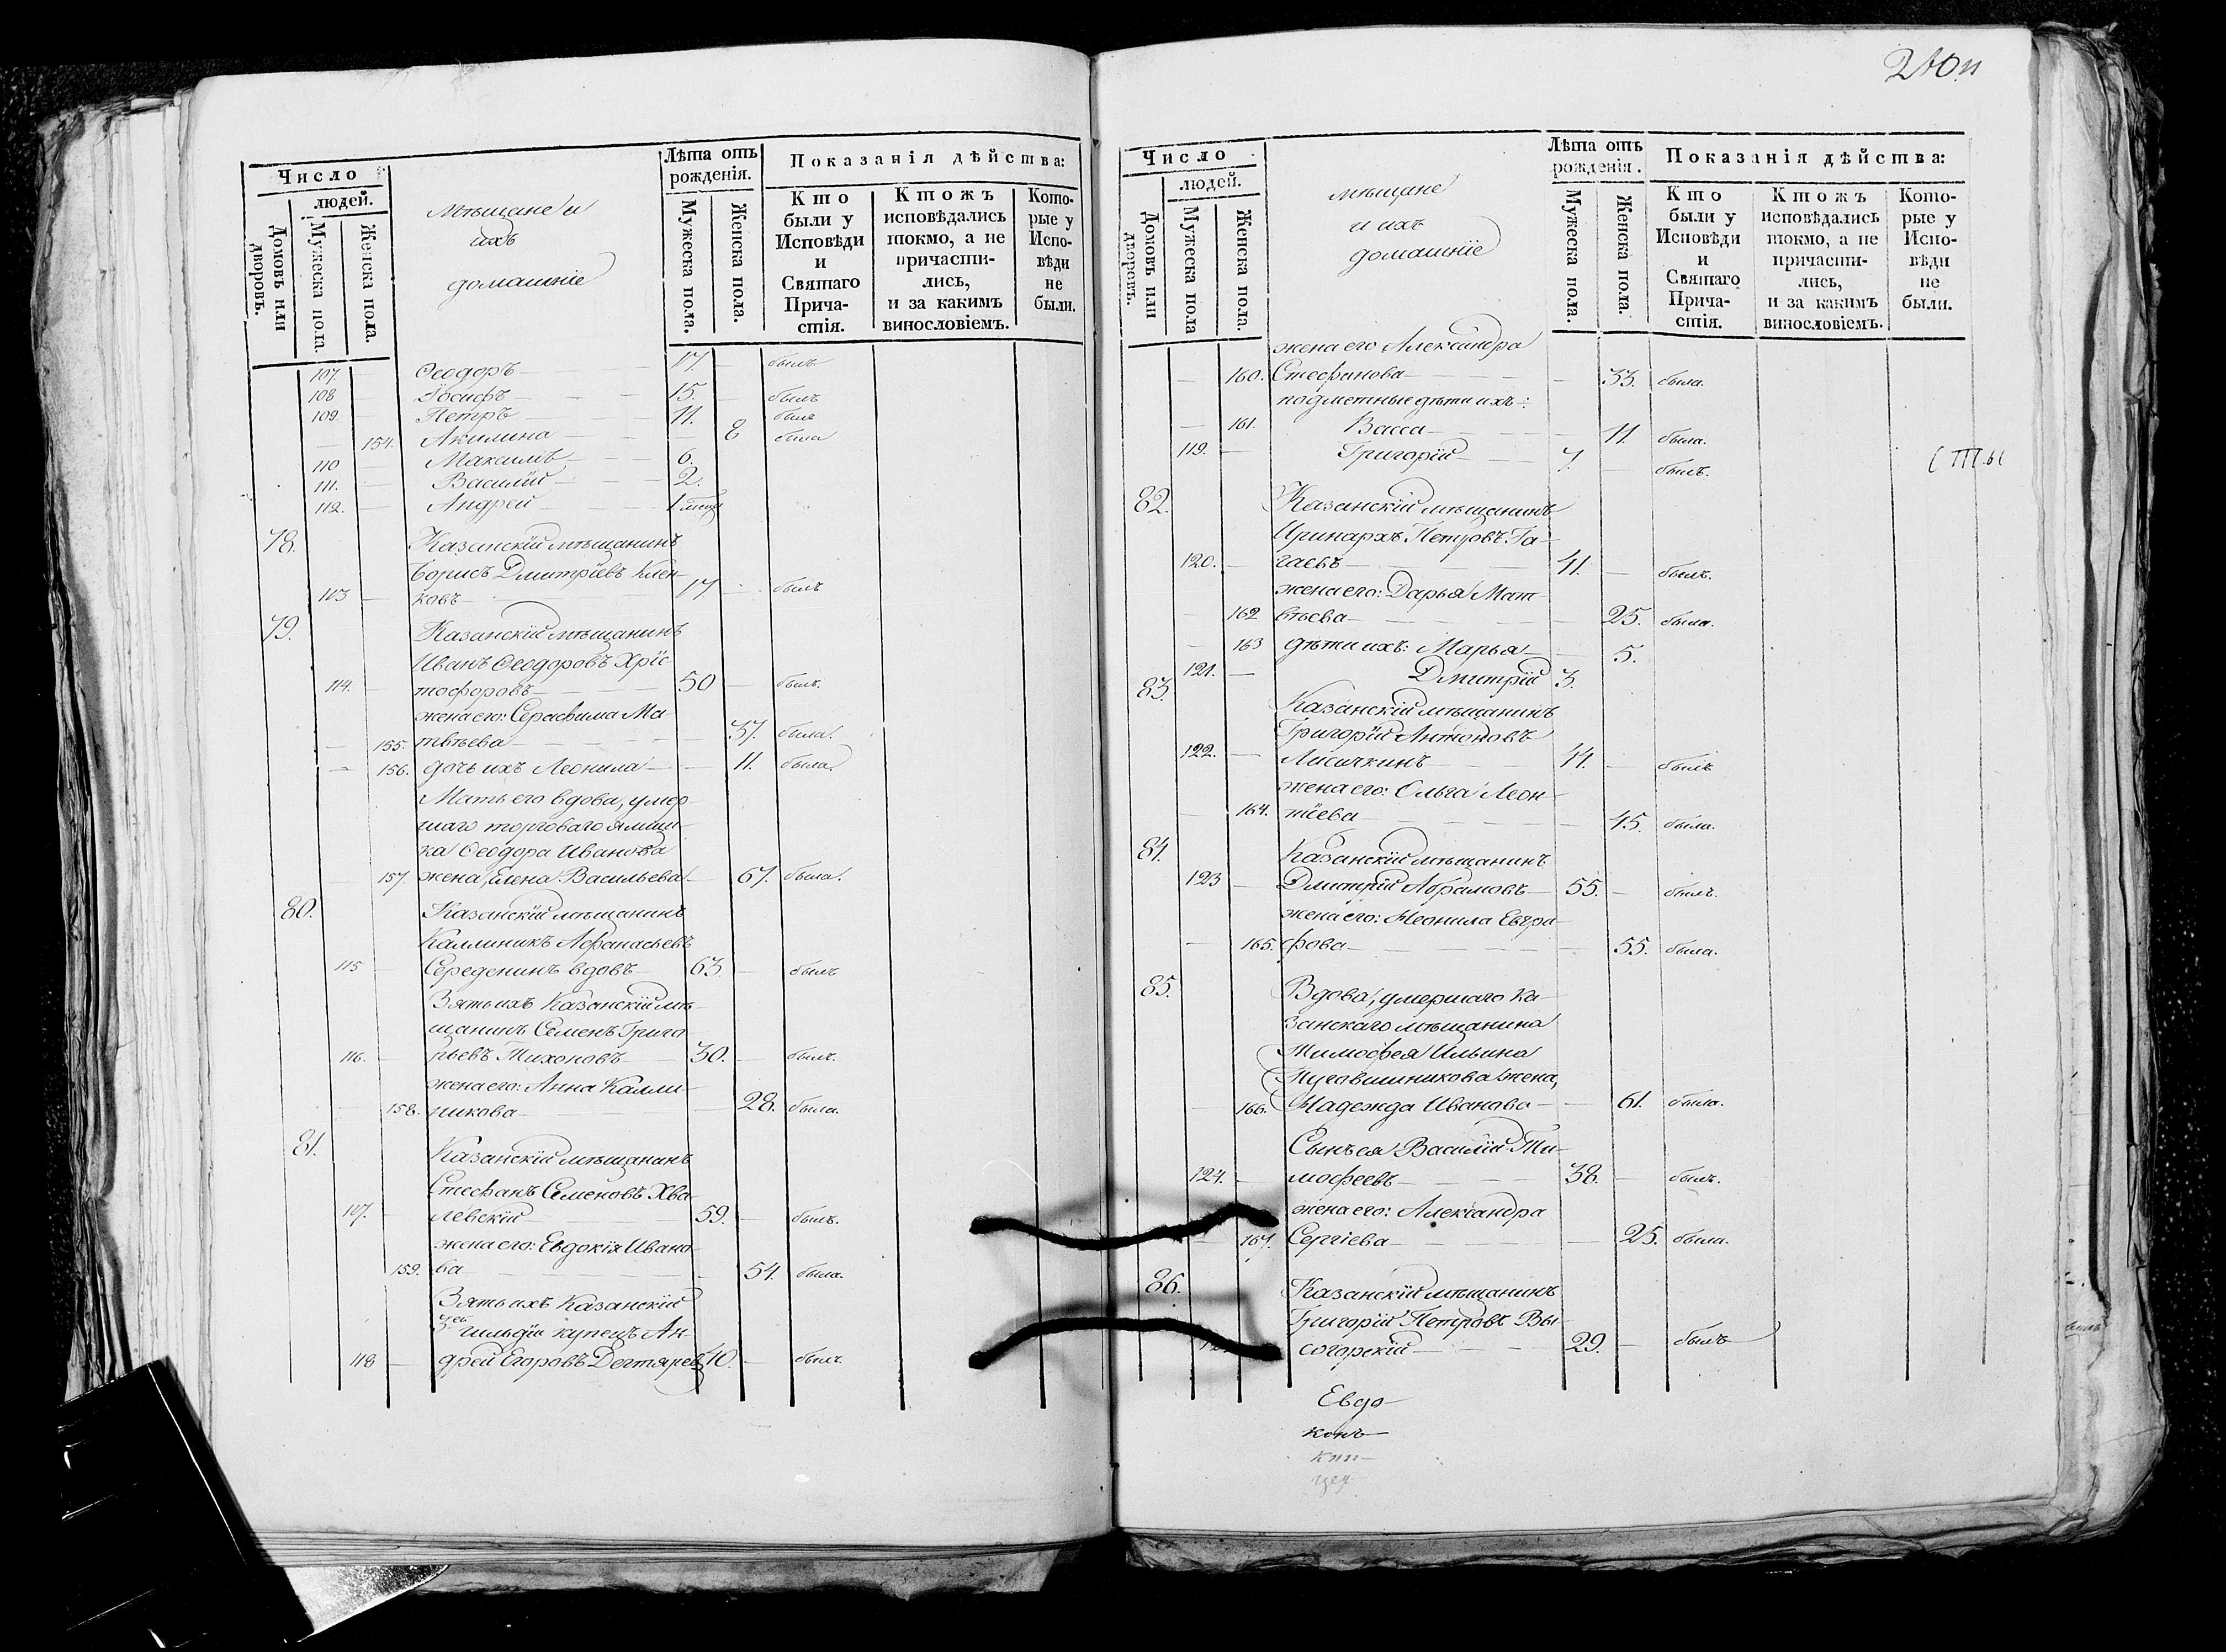 Число
людей.
Домовъ или дворовъ.
Мужеска пола.
Женска пола.
Мѣщане и
ихъ
домашніе
Лѣта отъ рожденія.
Мужеска пола.
Женска пола.
Показанія дѣйства:
Кто были у Исповѣди и Святаго Прича-стія.
Ктожъ исповѣдались токмо, а не причасти-лись, и за какимъ винословіемъ.
Кото-рые у Испо-вѣди не были.
107. Ѳеодоръ 17. былъ
108 Іосифъ 15. былъ
109. Петръ 11. былъ
154. Акилина 8 была
110 Максимъ 6.
111. Василій 2.
112. Андрей 1
78. Казанскій мѣщанинъ
Борисъ Дмитріевъ Клен-
113 ковъ 17 былъ
79. Казанскій мѣщанинъ
Иванъ Ѳеодоровъ Хрис-
114. тофоровъ 50 былъ.
жена его: Серафима Ма-
155. твѣева 37. была.
156. дочь ихъ Леонила 11. была.
Мать его вдова, умер-
шаго торговаго ямщи-
ка Ѳеодора Иванова
157. жена, Елена Васильева 67. была.
80. Казанскій мѣщанинъ
Каллиникъ Аѳанасьевъ
115 Середенинъ вдовъ 63. былъ
Зять ихъ Казанскій мѣ-
щанинъ Семенъ Григо-
116. рьевъ Тихоновъ 30. былъ.
жена его: Анна Калли-
158. никова 28. была.
81. Казанскій мѣщанинъ
Стефанъ Семеновъ Хва-
107. левскій 59. былъ.
жена его: Евдокія Ивано-
159. ва 54. была.
Зять ихъ Казанскій
3ей гильдіи купецъ Ан-
118 дрей Егоровъ Дегтяревъ 40. былъ.
Число
людей.
Домовъ или дворовъ.
Мужеска пола
Женска пола.
мѣщане
и ихъ
домашніе
Лѣта отъ рожденія.
Мужеска пола.
Женска пола.
Показанія дѣйства:
Кто были у Исповѣди и Святаго Прича-стія.
Ктожъ исповѣдались токмо, а не причасти-лись, и за какимъ винословіемъ.
Кото-рые у Испо-вѣди не были.
жена его Александра
160. Стефанова 33. была.
подметные дѣти ихъ:
161. Васса 11. была.
119. Григорій 7. былъ.
82. Казанскій мѣщанинъ
Иринархъ Петровъ Га-
120. гаевъ 41. былъ.
жена его: Дарья Мат-
162 вѣева 25. была.
163 дѣти ихъ: Марья 5.
121. Дмитрій 3.
83. Казанскій мѣщанинъ
Григорій Антоновъ
122. Лисичкинъ 44. былъ
жена его: Ольга Леон-
164. тіева 45. была.
84. Казанскій мѣщанинъ
123 Дмитрій Абрамовъ 55. былъ.
жена его: Неонила Евгра-
165. фова 55. была.
85. Вдова, умершаго Ка-
занскаго мѣщанина
Тимофея Ильина
Пуговишникова жена,
166. Надежда Иванова 61. была.
Сынъ ея Василій Ти-
124. мофеевъ 38. былъ.
жена его: Александра
167. Сергіева 25. была.
86. Казанскій мѣщанинъ
Григорій Петровъ Вы-
согорскій 29. былъ
Евдо-
конъ